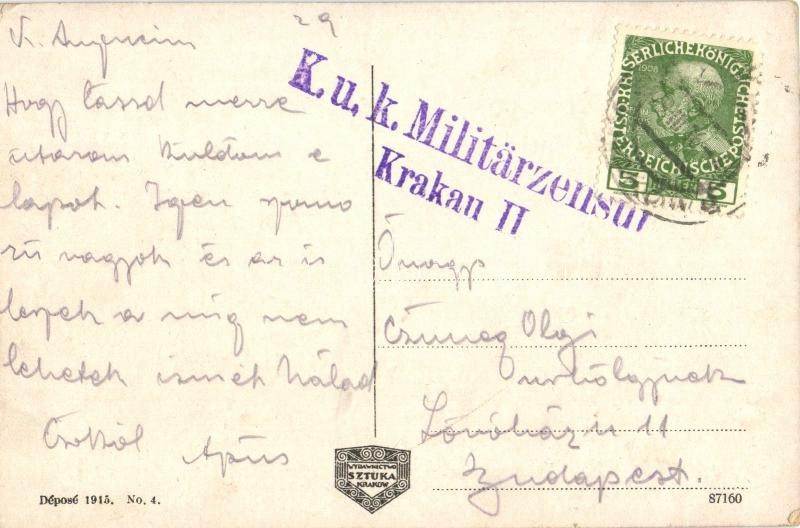 29
K. Angyalaim
Hogy lássd merre
utazom küldöm e
lapot. Igen szomo
rú vagyok és az is
leszek a míg nem
lehetek ismét Nálad
Csókol Apus
K. u. k. Militärzensur
Krakau II
1908
KAISERLICHEKÖNIGLICHE ÖSTERREICHISCHE POST
5 HELLER 5
Önagys
Csüneg Olgi
urhölgynek
Lövöház u 11
Budapest.
WYDAWNICTWO
SZTUKA
KRAKÓW
Déposé 1915. No. 4.
87160